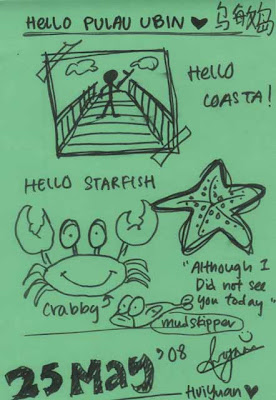 HELLO PULAU UBIN ♥ 乌敏岛
HELLO
COASTA!
HELLO STARFISH
"Although I
Did not see
you today"
Crabby
mudskipper
25 May '08
HuiYuan ♥